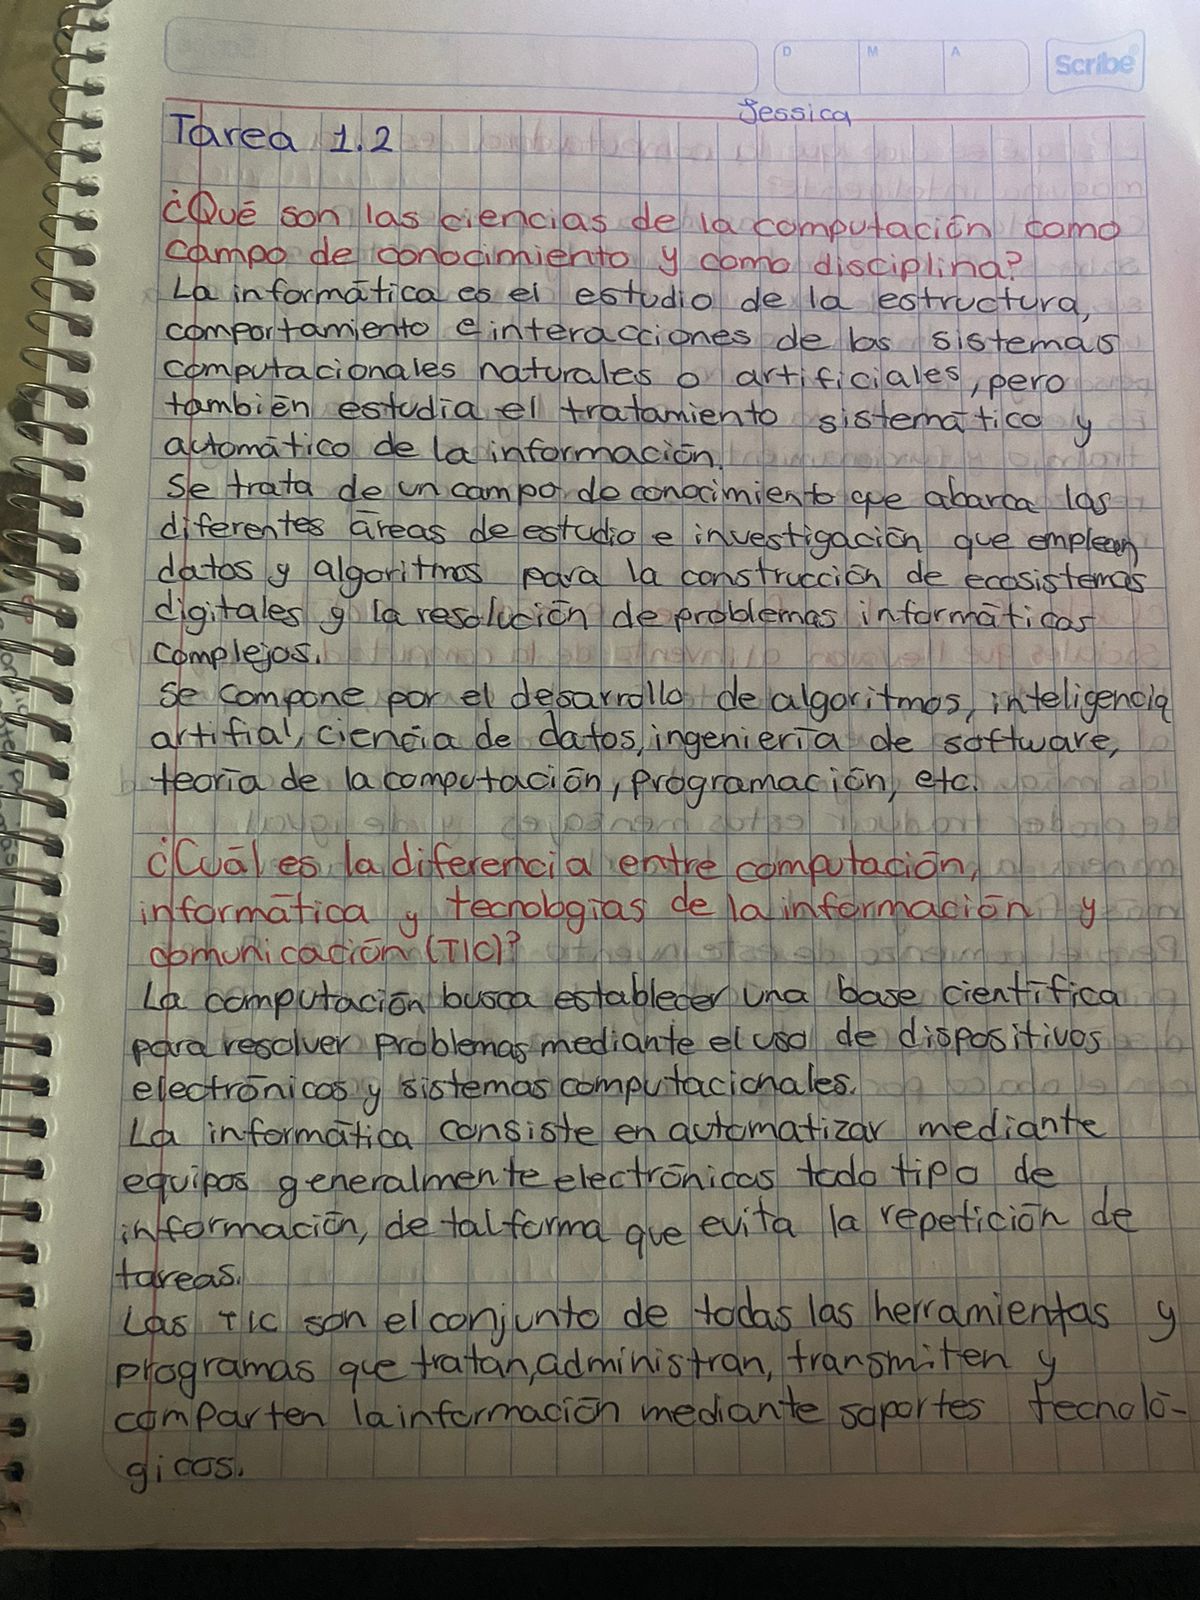 D M A Scribe
Jessica
Tarea 1.2
¿Qué son las ciencias de la computación como
campo de conocimiento y como disciplina?
La informática es el estudio de la estructura,
comportamiento e interacciones de los sistemas
computacionales naturales o artificiales, pero
también estudia el tratamiento sistemático y
automático de la información.
Se trata de un campo de conocimiento que abarca las
diferentes áreas de estudio e investigación que emplean
datos y algoritmos para la construcción de ecosistemas
digitales y la resolución de problemas informáticos
complejos.
Se compone por el desarrollo de algoritmos, inteligencia
artifial, ciencia de datos, ingeniería de software,
teoría de la computación, programación, etc.
¿Cuál es la diferencia entre computación,
informática y tecnologías de la información y
comunicación (TIC)?
La computación busca establecer una base científica
para resolver problemas mediante el uso de dispositivos
electrónicos y sistemas computacionales.
La informática consiste en automatizar mediante
equipos generalmente electrónicos todo tipo de
información, de tal forma que evita la repetición de
tareas.
Las TIC son el conjunto de todas las herramientas y
programas que tratan, administran, transmiten y
comparten la información mediante soportes tecnoló-
gicos.